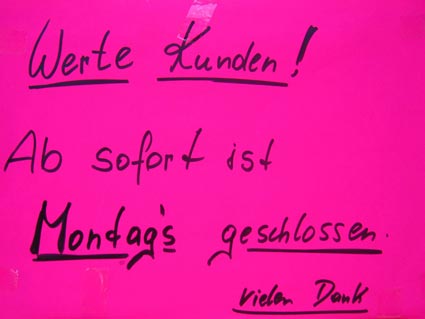 Werte Kunden!
Ab sofort ist
Montag's geschlossen.
vielen Dank